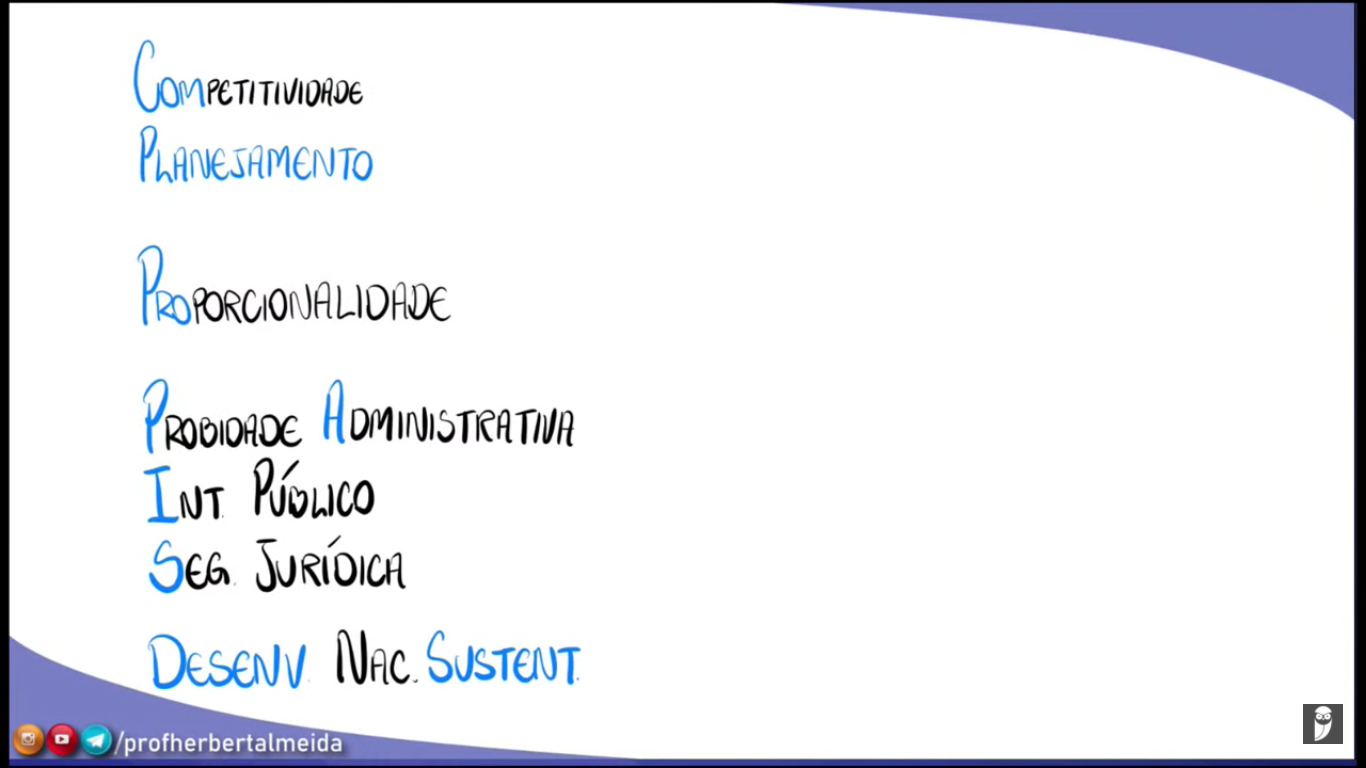 COMPETITIVIDADE
PLANEJAMENTO
PROPORCIONALIDADE
PROBIDADE ADMINISTRATIVA
INT. PÚBLICO
SEG. JURÍDICA
DESENV. NAC. SUSTENT.
/profherbertalmeida